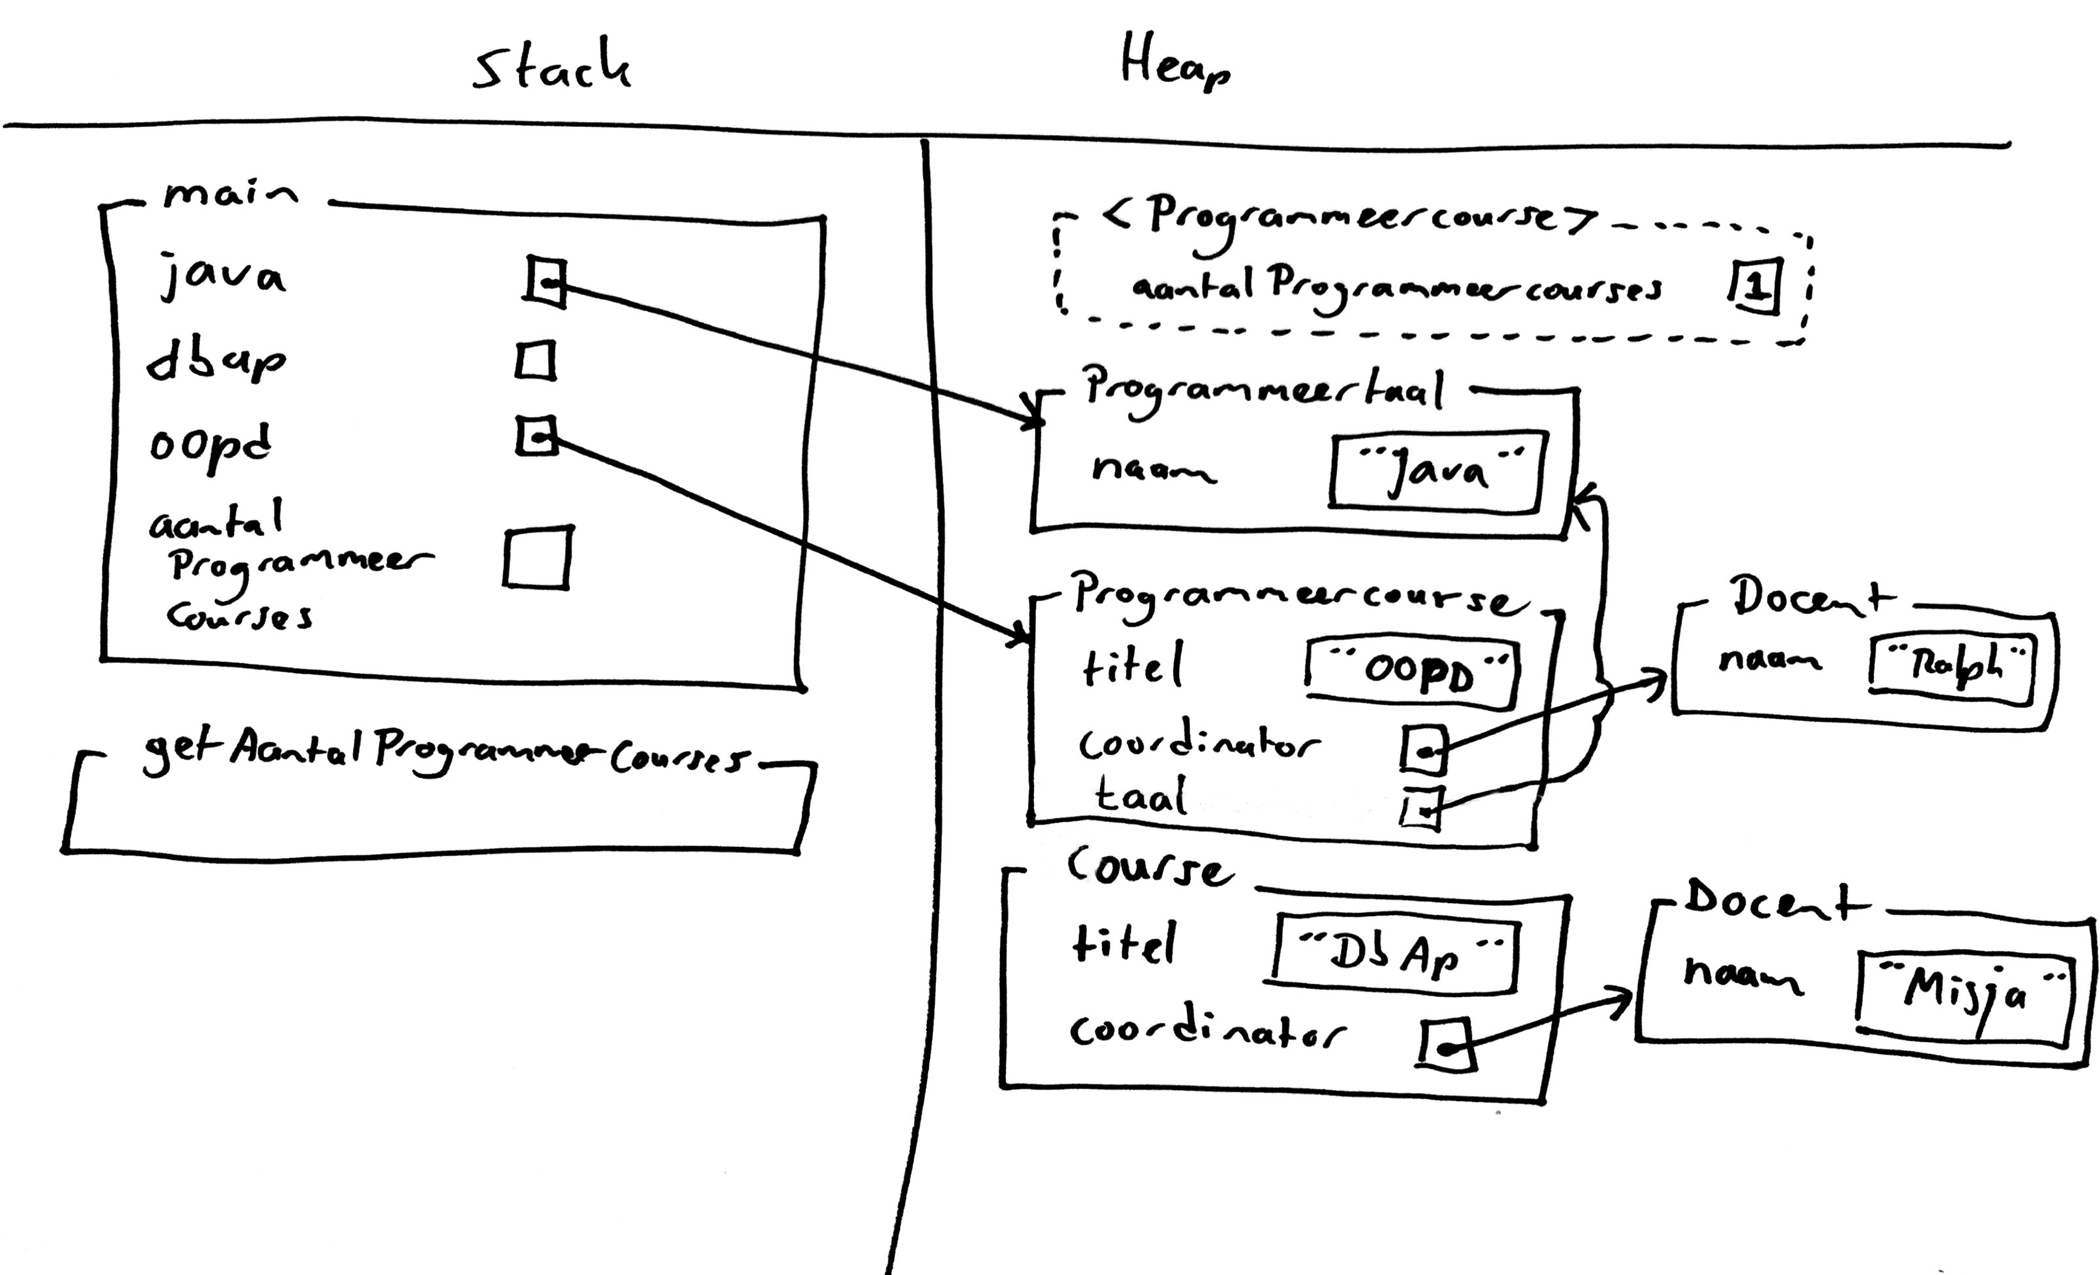 Stack
Heap
main
java
dbap
oopd
aantal
Programmeer
Courses
getAantalProgrammeerCourses
<Programmeercourse>
aantalProgrammeercourses 1
Programmeertaal
naam "Java"
Programmeercourse
titel "OOPD"
coordinator
taal
Docent
naam "Ralph"
Course
titel "DbAp"
coordinator
Docent
naam "Misja"